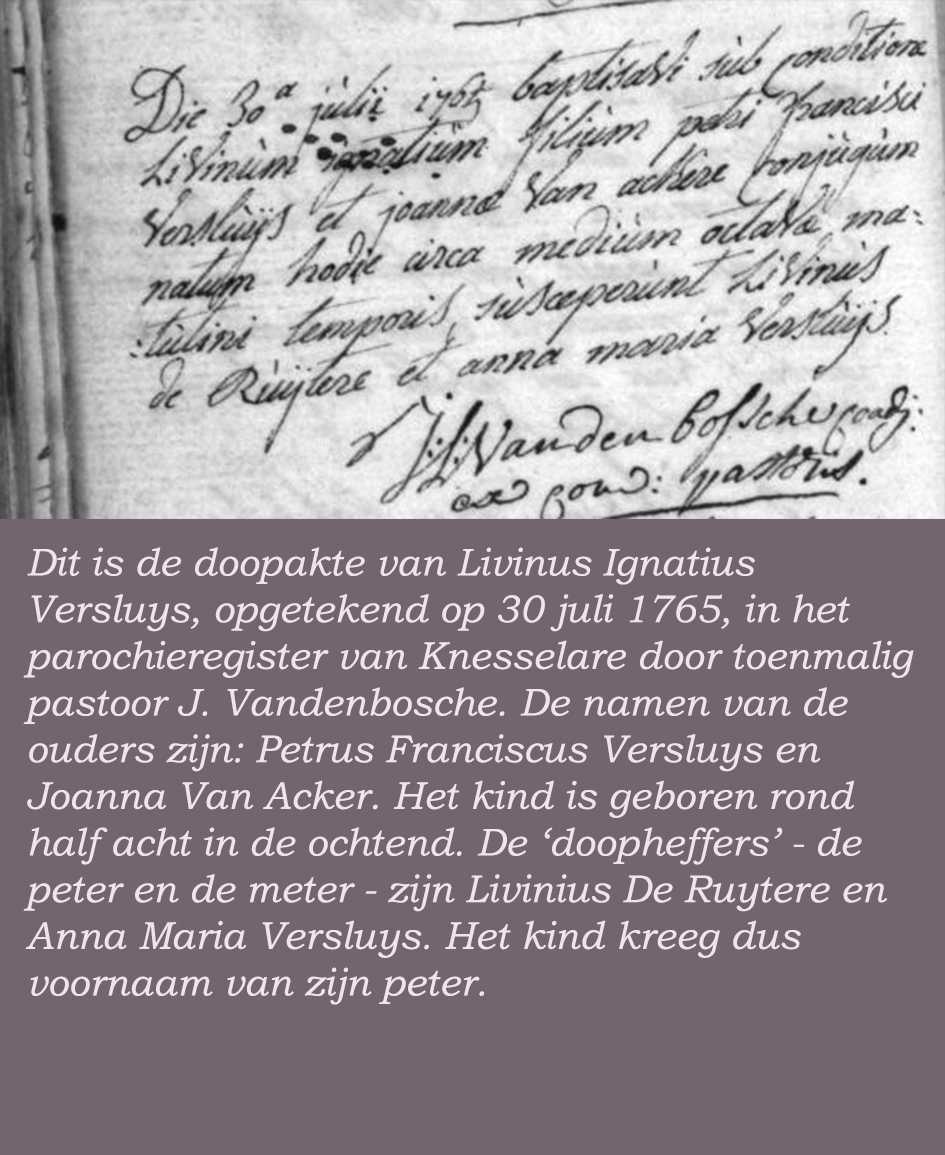 Die 30a julii 1765 baptisavi sub conditione
Livinum ignatium filium petri francisci
Versluijs et joannæ Van ackere conjugum
natum hodie circa medium octavæ ma:
:tutini temporis, susceperunt Livinus
de Ruijtere et anna maria Versluijs.
J: Vanden bossche coadj:
pastoris.
Dit is de doopakte van Livinus Ignatius
Versluys, opgetekend op 30 juli 1765, in het
parochieregister van Knesselare door toenmalig
pastoor J. Vandenbosche. De namen van de
ouders zijn: Petrus Franciscus Versluys en
Joanna Van Acker. Het kind is geboren rond
half acht in de ochtend. De ‘doopheffers’ - de
peter en de meter - zijn Livinius De Ruytere en
Anna Maria Versluys. Het kind kreeg dus
voornaam van zijn peter.